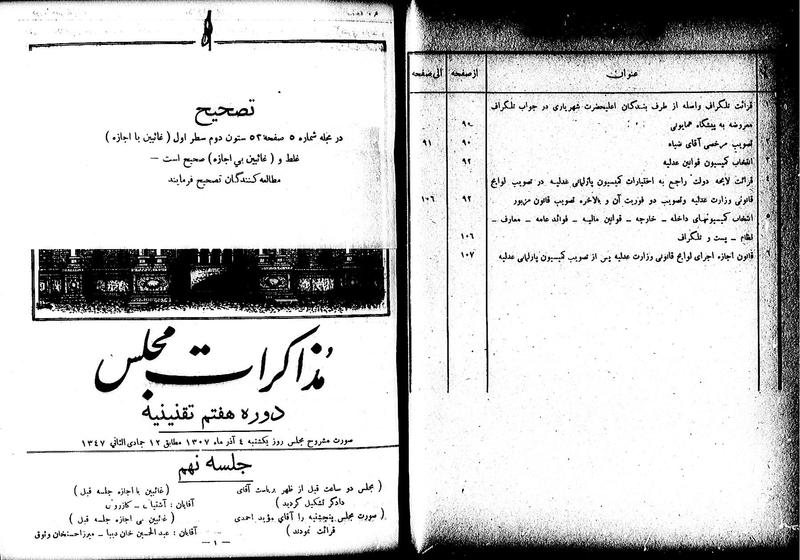 تصحیح
در مجله شماره ۵ صفحه ۵۲ ستون دوم سطر اول ( غائبین با اجازه )
غلط و ( غائبین بی اجازه ) صحیح است —
مطالعه کنندگان تصحیح فرمایند
مذاکرات مجلس
دوره هفتم تقنینیه
صورت مشروح مجلس روز یکشنبه ۴ آذر ماه ۱۳۰۷ مطابق ۱۲ جمادی الثانی ۱۳۴۷
جلسه نهم
( مجلس دو ساعت قبل از ظهر بریاست آقای
دادگر تشکیل گردید )
( صورت مجلس پنجشنبه را آقای مؤید احمدی
قرائت نمودند )
( غائبین با اجازه جلسه قبل )
آقایان : آشتیانی ــ کازرونی
( غائبین بی اجازه جلسه قبل )
آقایان : عبد الحسین خان دیبا ــ میرزا حسنخان وثوق
— ۱ —
عنوان از صفحه الی صفحه
قرائت تلگراف واصله از طرف بندگان اعلیحضرت شهریاری در جواب تلگراف
معروضه به پیشگاه همایونی ۹۰
تصویب مرخصی آقای ضیاء ۹۰ ۹۱
۳ انتخاب کمیسیون قوانین عدلیه ۹۲
۴ قرائت لایحه دولت راجع به اختیارات کمیسیون پارلمانی عدلیه در تصویب لوایح
قانونی وزارت عدلیه وتصویب دو فوریت آن و بالاخره تصویب قانون مزبور ۹۲ ۱۰۶
۵ انتخاب کمیسیونهای داخله ــ خارجه ــ قوانین مالیه ــ فوائد عامه ــ معارف ــ
نظام ــ پست و تلگراف ۱۰۶
۶ قانون اجازه اجرای لوایح قانونی وزارت عدلیه پس از تصویب کمیسیون پارلمانی عدلیه ۱۰۷